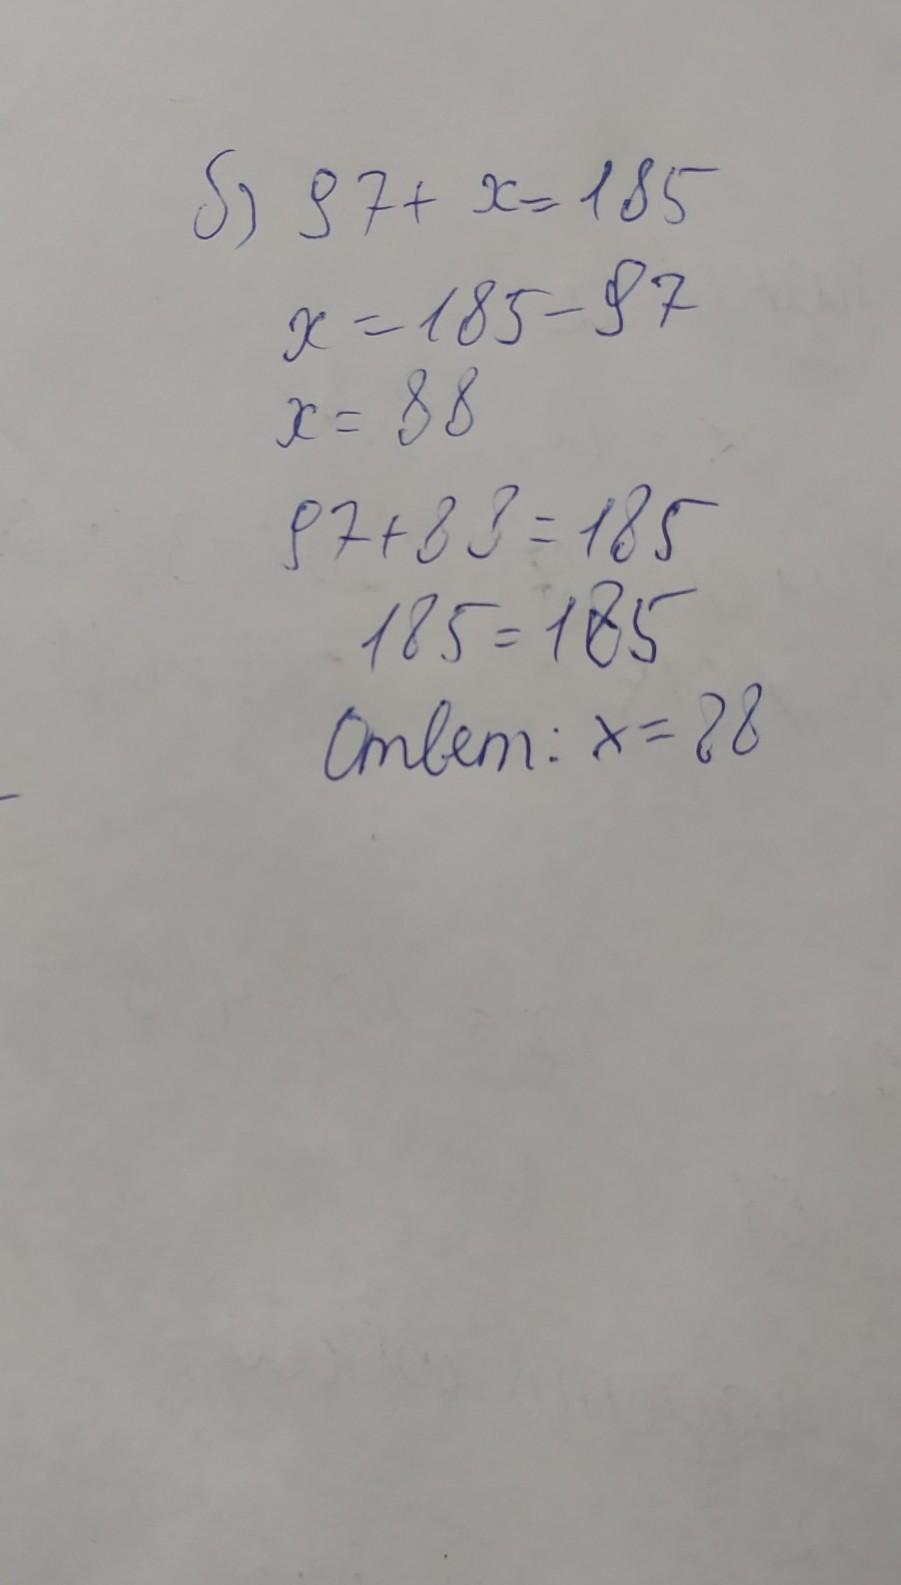 б) 97 + x = 185
x = 185 - 97
x = 88
97 + 88 = 185
185 = 185
Ответ: x = 88